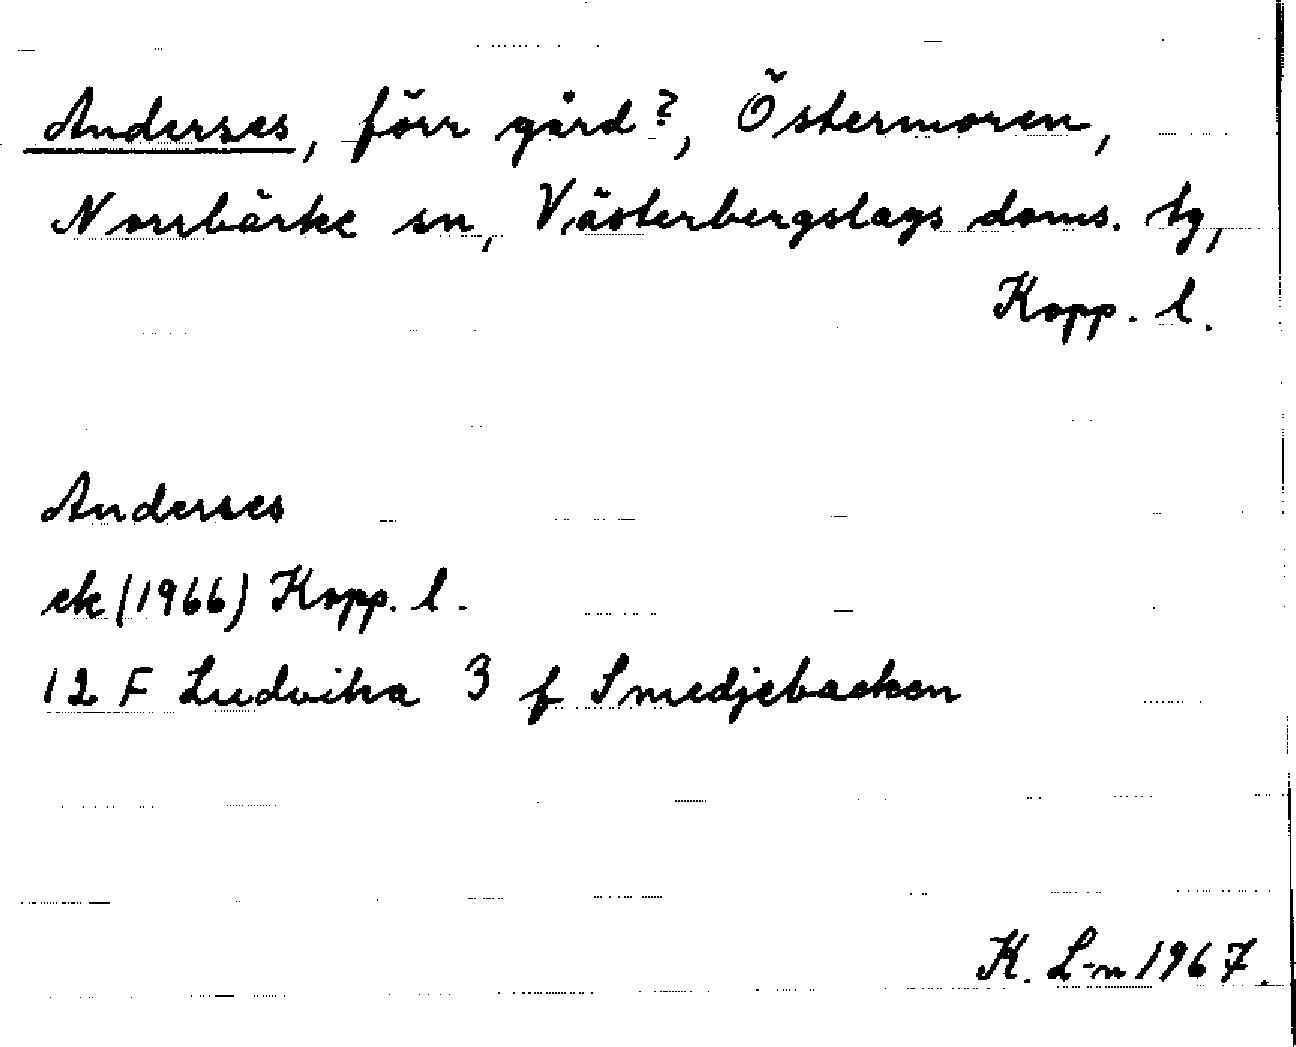 Anderses, förr gård?, Östermoren,
Norrbärke sn, Västerbergslags doms. tg,
Kopp. l.
Anderses
ek (1966) Kopp. l.
12 F Ludvika 3 f Smedjebacken
K. L-n 1967.